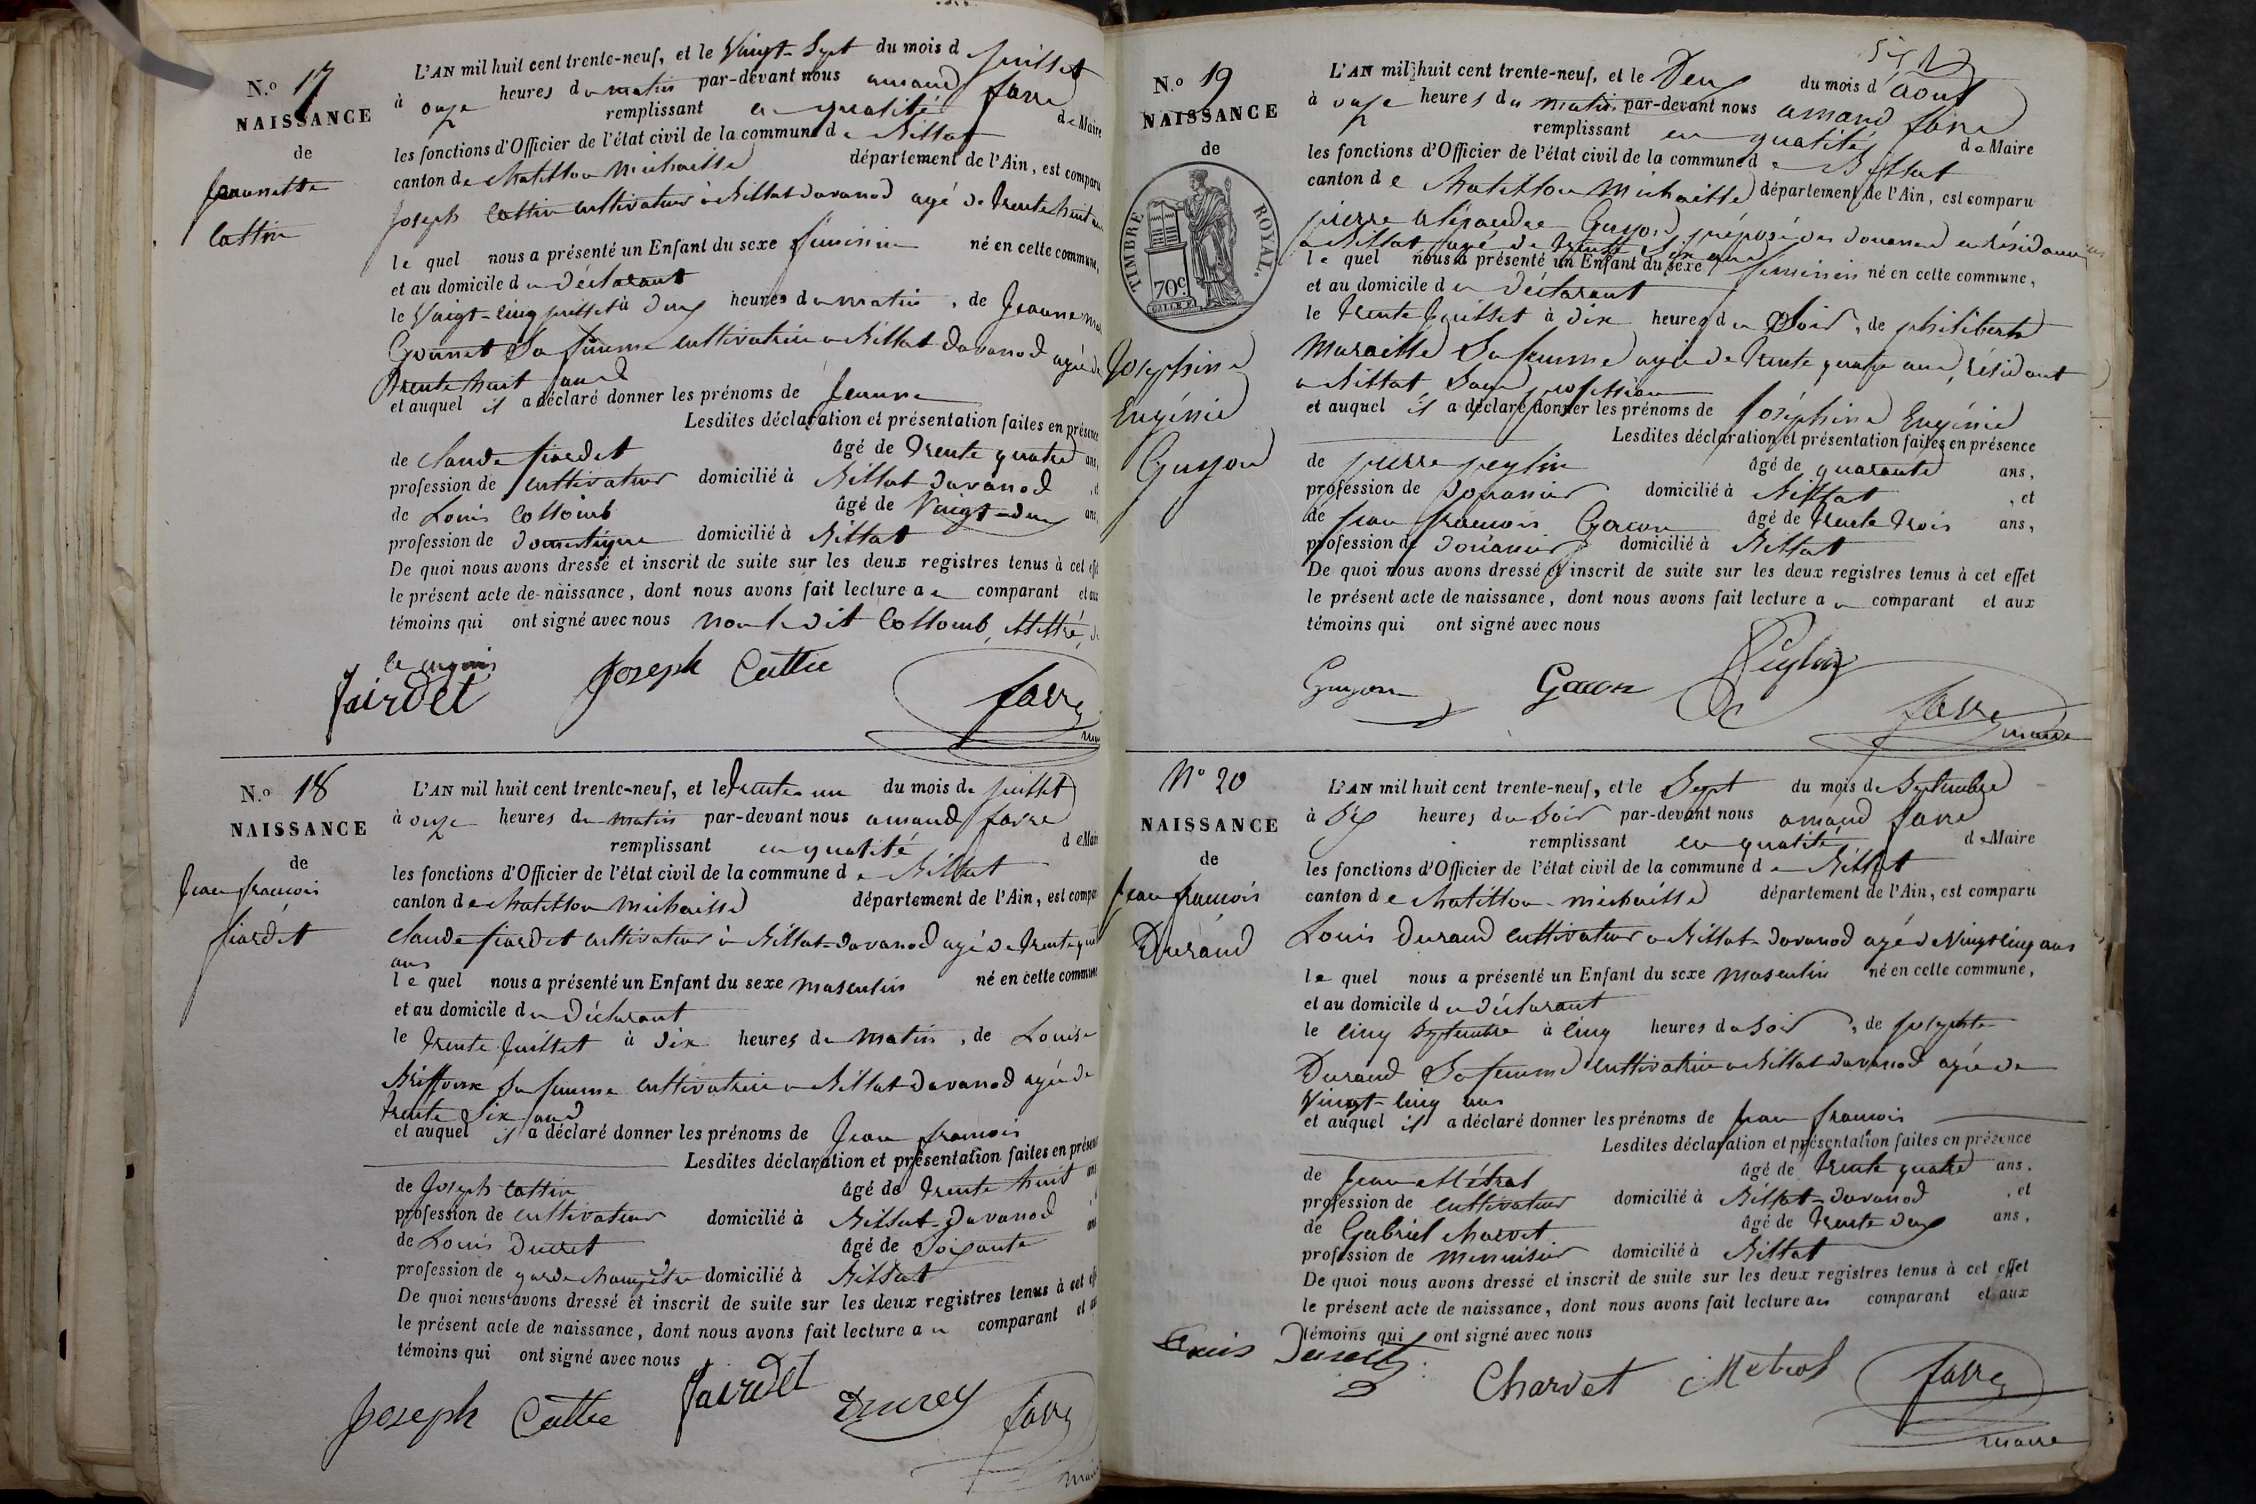 N.o 17
NAISSANCE
de
Jeannette
Cattin
L'AN mil huit cent trente-neuf, et le Vingt-Sept du mois d juillet
à onze heures du matin par-devant nous amand favre
remplissant en qualité de Maire
les fonctions d'Officier de l'état civil de la commune de Billiat
canton de chatillon michaille département de l'Ain, est comparu
Joseph Cattin cultivateur à Billiat davanod agé de trente huit ans
le quel nous a présenté un Enfant du sexe féminin né en cette commune,
et au domicile du déclarant
le Vingt-cinq juillet à deux heures du matin, de Jeanne
Gonnet Sa femme cultivatrice a Billiat davanod agée de
trente huit ans
et auquel il a déclaré donner les prénoms de Jeanne
Lesdites déclaration et présentation faites en présence
de claude fiardet âgé de trente quatre ans,
profession de cultivateur domicilié à Billiat davanod
de Louis Collomb âgé de Vingt-deux ans,
profession de domestique domicilié à Billiat
De quoi nous avons dressé et inscrit de suite sur les deux registres tenus à cet
le présent acte de naissance, dont nous avons fait lecture au comparant et aux
témoins qui ont signé avec nous non le dit Collomb illettré, de
ce requis
fairdet Joseph Cattie favre
N.o 18
NAISSANCE
de
Jean francois
fiardet
L'AN mil huit cent trente-neuf, et le trente un du mois de juillet
à onze heures du matin par-devant nous amand favre
remplissant en qualité de Maire
les fonctions d'Officier de l'état civil de la commune de Billiat
canton de chatillon michaille département de l'Ain, est
claude fiardet cultivateur à Billiat-davanod agé de trente
ans
le quel nous a présenté un Enfant du sexe masculin né en cette commune
et au domicile du déclarant
le trente juillet à dix heures du matin, de Louise
Sa femme cultivatrice a Billiat-davanod agée de
trente Six ans
et auquel il a déclaré donner les prénoms de Jean francois
Lesdites déclaration et présentation faites en
de Joseph Cattin âgé de trente huit ans
profession de cultivateur domicilié à Billiat-davanod
de Louis Ducret âgé de Soixante
profession de garde champêtre domicilié à Billiat
De quoi nous avons dressé et inscrit de suite sur les deux registres tenus à cet
le présent acte de naissance, dont nous avons fait lecture au comparant et
témoins qui ont signé avec nous
Joseph Cattie fairdet favre
N.o 19
NAISSANCE
de
TIMBRE ROYAL.
70c.
Joséphine
Eugénie
Guyon
L'AN mil huit cent trente-neuf, et le Deux du mois d'août
à onze heures du matin par-devant nous amand favre
remplissant en qualité de Maire
les fonctions d'Officier de l'état civil de la commune de Billiat
canton de chatillon michaille département de l'Ain, est comparu
pierre alexandre Guyon, préposé des douanes en résidence
a Billiat agé de trente Six ans
le quel nous a présenté un Enfant du sexe féminin né en cette commune,
et au domicile du déclarant
le trente juillet à dix heures du Soir, de philiberte
Maraille Sa femme agée de trente quatre ans, résidant
a Billiat Sans profession
et auquel il a déclaré donner les prénoms de Joséphine Eugénie
Lesdites déclaration et présentation faites en présence
de pierre peylin âgé de quarante ans,
profession de Douanier domicilié à Billiat, et
de jean francois Gacon âgé de trente trois ans,
profession de douanier domicilié à Billiat
De quoi nous avons dressé et inscrit de suite sur les deux registres tenus à cet effet
le présent acte de naissance, dont nous avons fait lecture au comparant et aux
témoins qui ont signé avec nous
Guyon Gacon Peylin favre
maire
No 20
NAISSANCE
de
Jean francois
Durand
L'AN mil huit cent trente-neuf, et le Sept du mois de Septembre
à Six heures du Soir par-devant nous amand favre
remplissant en qualité de Maire
les fonctions d'Officier de l'état civil de la commune de Billiat
canton de chatillon-michaille département de l'Ain, est comparu
Louis Durand cultivateur a Billiat-davanod agé de Vingt cinq ans
le quel nous a présenté un Enfant du sexe masculin né en cette commune,
et au domicile du déclarant
le cinq Septembre à cinq heures du Soir, de josephte
Durand Sa femme cultivatrice a Billiat-davanod agée de
Vingt-cinq ans
et auquel il a déclaré donner les prénoms de Jean francois
Lesdites déclaration et présentation faites en présence
de Jean Métral âgé de trente quatre ans,
profession de cultivateur domicilié à Billiat-davanod, et
de Gabriel charvet âgé de trente deux ans,
profession de menuisier domicilié à Billiat
De quoi nous avons dressé et inscrit de suite sur les deux registres tenus à cet effet
le présent acte de naissance, dont nous avons fait lecture au comparant et aux
témoins qui ont signé avec nous
Charvet Metral favre
maire